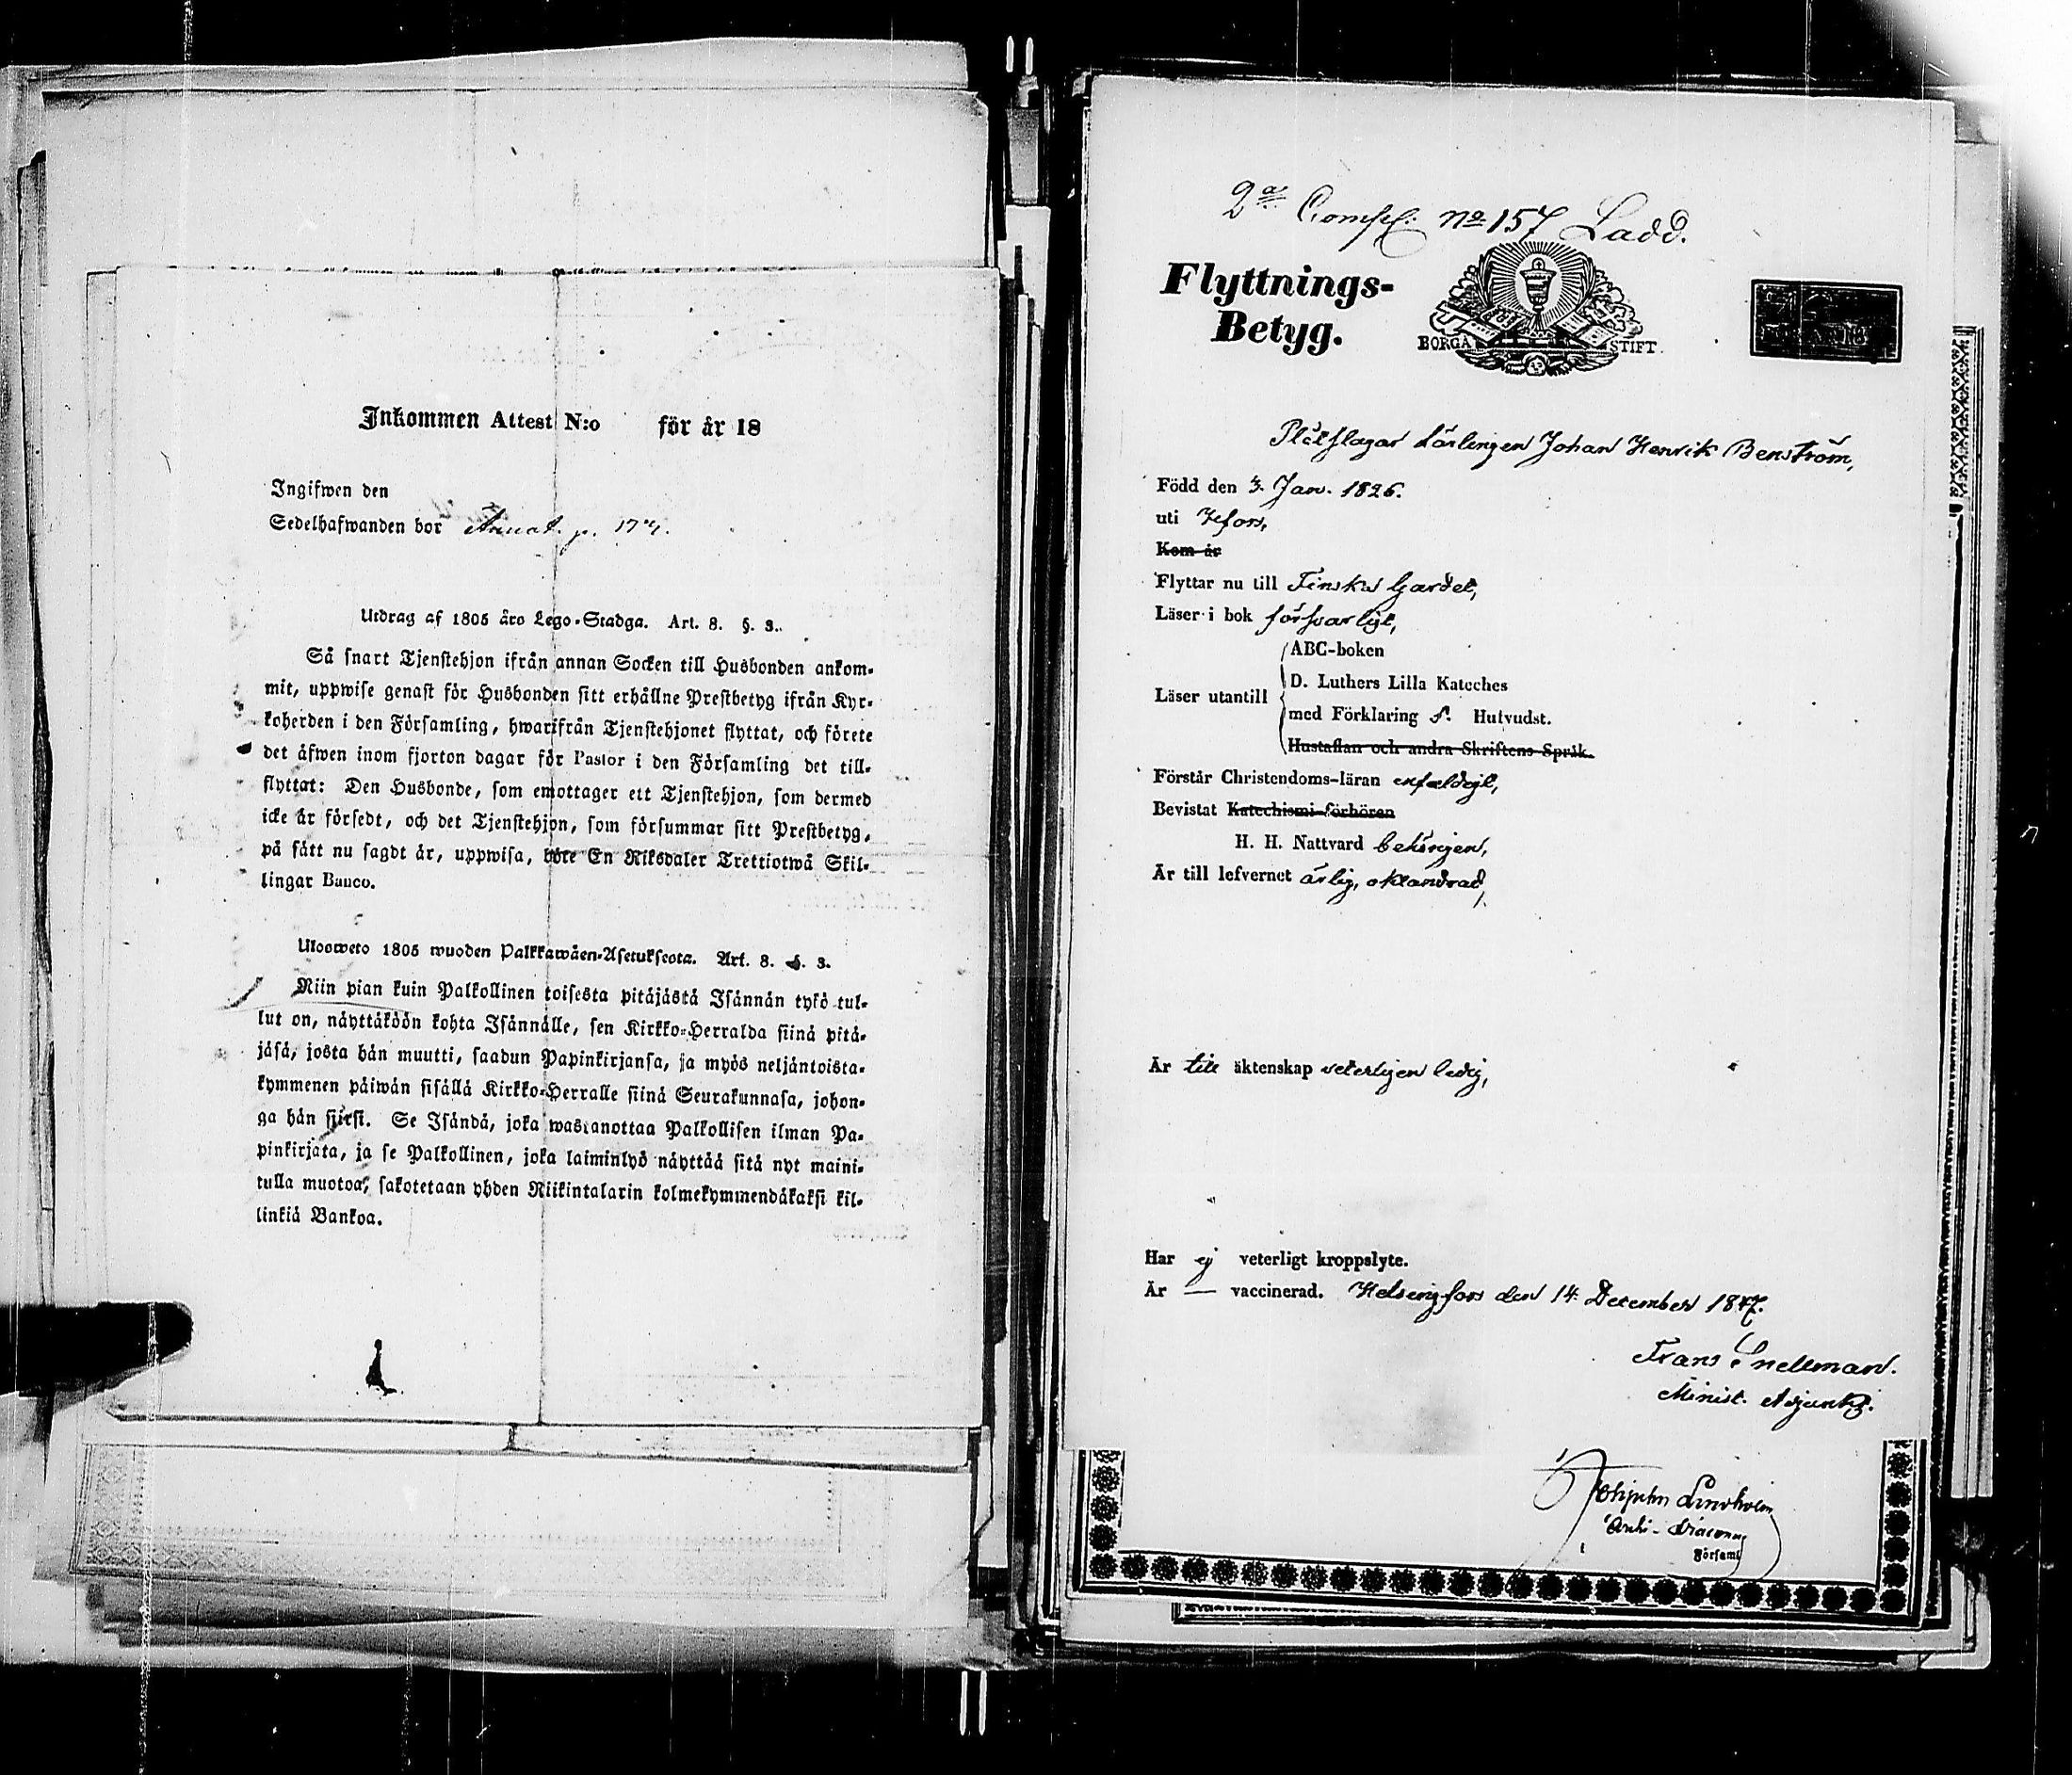 Inkommen Attest N:o för år 18
Ingifwen den
Sedelhafwanden bor Annat. p. 174.
Utdrag af 1805 års Lego-Stadga. Art. 8. §. 3.
Så snart Tjenstehjon ifrån annan Socken till Husbonden ankom-
mit, uppwise genast för Husbonden sitt erhållne Prestbetyg ifrån Kyr-
koherden i den Församling, hwarifrån Tjenstehjonet flyttat, och förete
det äfwen inom fjorton dagar för Pastor i den Församling det till-
flyttat: Den Husbonde, som emottager ett Tjenstehjon, som dermed
icke är försedt, och det Tjenstehjon, som försummar sitt Prestbetyg,
på sätt nu sagdt är, uppwisa, böte En Riksdaler Trettiotwå Skil-
lingar Banco.
Ulosweto 1805 wuoden Palkkawäen-Asetuksesta. Art. 8. §. 3.
Niin pian kuin Palkollinen toisesta pitäjästä Isännän tykö tul-
lut on, näyttäköön kohta Isännälle, sen Kirkko-Herralda siinä pitä-
jäsä, josta hän muutti, saadun Papinkirjansa, ja myös neljäntoista-
kymmenen päiwän sisällä Kirkko-Herralle siinä Seurakunnasa, johon-
ga hän siirsi. Se Isändä, joka wastanottaa Palkollisen ilman Pa-
pinkirjata, ja se Palkollinen, joka laiminlyö näyttää sitä nyt maini-
tulla muotoa, sakotetaan yhden Riikintalarin kolmekymmendäkaksi kil-
linkiä Bankoa.
2a Comp: No 157 Ladd.
Flyttnings-
Betyg.
BORGÅ STIFT.
Plåtslagar Lärlingen Johan Henrik Benström,
Född den 3. Jan. 1826.
uti Hfors,
Kom år
Flyttar nu till Finska Gardet,
Läser i bok försvarligt,
ABC-boken
D. Luthers Lilla Kateches
Läser utantill
med Förklaring s. Hufvudst.
Hustaflan och andra Skriftens Språk.
Förstår Christendoms-läran enfaldigt,
Bevistat Katechismi-förhören
H. H. Nattvard behörigen,
Är till lefvernet ärlig, oklandrad,
Är till äktenskap veterligen ledig,
Har ej veterligt kroppslyte.
Är — vaccinerad. Helsingfors den 14. December 1847.
Frans Snellman.
Minist. Adjunkt.
Lindholm
Archi-Diaconus
Församl